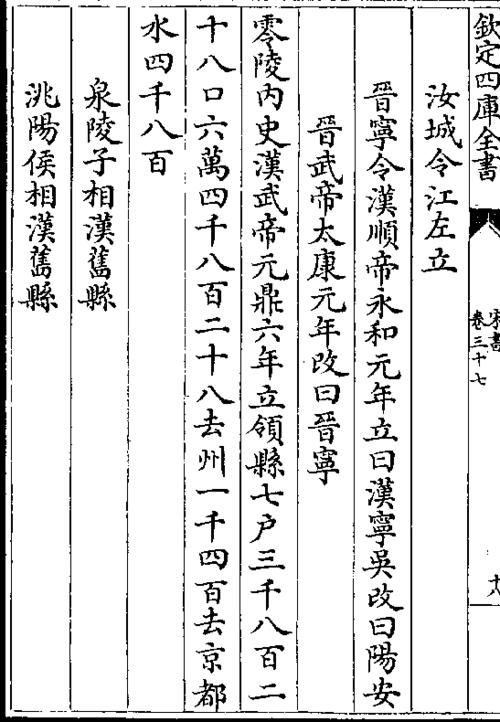 欽定四庫全書
宋書
卷三十七
十八
汝城令江左立
晉寧令漢順帝永和元年立曰漢寧吳改曰陽安
晉武帝太康元年改曰晉寧
零陵内史漢武帝元鼎六年立領縣七户三千八百二
十八口六萬四千八百二十八去州一千四百去京都
水四千八百
泉陵子相漢舊縣
洮陽侯相漢舊縣